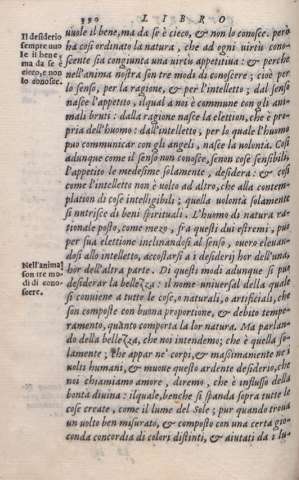 350 LIBRO
Il desiderio
sempre uuo
le il bene,
ma da se è
cieco, e non
lo conosce.
uuole il bene, ma da se è cieco, & non lo conosce. però
ha così ordinato la natura, che ad ogni uirtù cono-
scente sia congiunta una uirtù appetitiua: & perche
nell'anima nostra son tre modi di conoscere; cioè per
lo senso, per la ragione, & per l'intelletto; dal senso
nasce l'appetito, ilqual a noi è commune con gli ani-
mali bruti: dalla ragione nasce la elettion, che è pro-
pria dell'huomo: dall'intelletto, per lo quale l'huomo
puo communicar con gli angeli, nasce la uolontà. Così
adunque come il senso non conosce, senon cose sensibili,
l'appetito le medesime solamente, desidera: & così
come l'intelletto non è uolto ad altro, che alla contem-
plation di cose intelligibili; quella uolontà solamente
si nutrisce di beni spirituali. L'huomo di natura ra-
tionale posto, come mezo, fra questi dui estremi, può
per sua elettione inclinandosi al senso, ouero eleuan-
dosi allo intelletto, accostarsi a i desiderij hor dell'una,
hor dell'altra parte. Di questi modi adunque si può
Nell'anima
son tre mo
di di cono-
scere.
desiderar la bellezza: il nome uniuersal della quale
si conuiene a tutte le cose, o naturali, o artificiali, che
son composte con buona proportione, & debito tempe-
ramento, quanto comporta la lor natura. Ma parlan-
do della bellezza, che noi intendemo; che è quella so-
lamente; che appar ne' corpi, & massimamente ne i
uolti humani, & muoue questo ardente desiderio, che
noi chiamiamo amore, diremo, che è influsso della
bontà diuina: ilquale, benche si spanda sopra tutte le
cose create, come il lume del Sole; pur quando troua
un uolto ben misurato, & composto con una certa gio-
conda concordia di colori distinti, & aiutati da i lu-